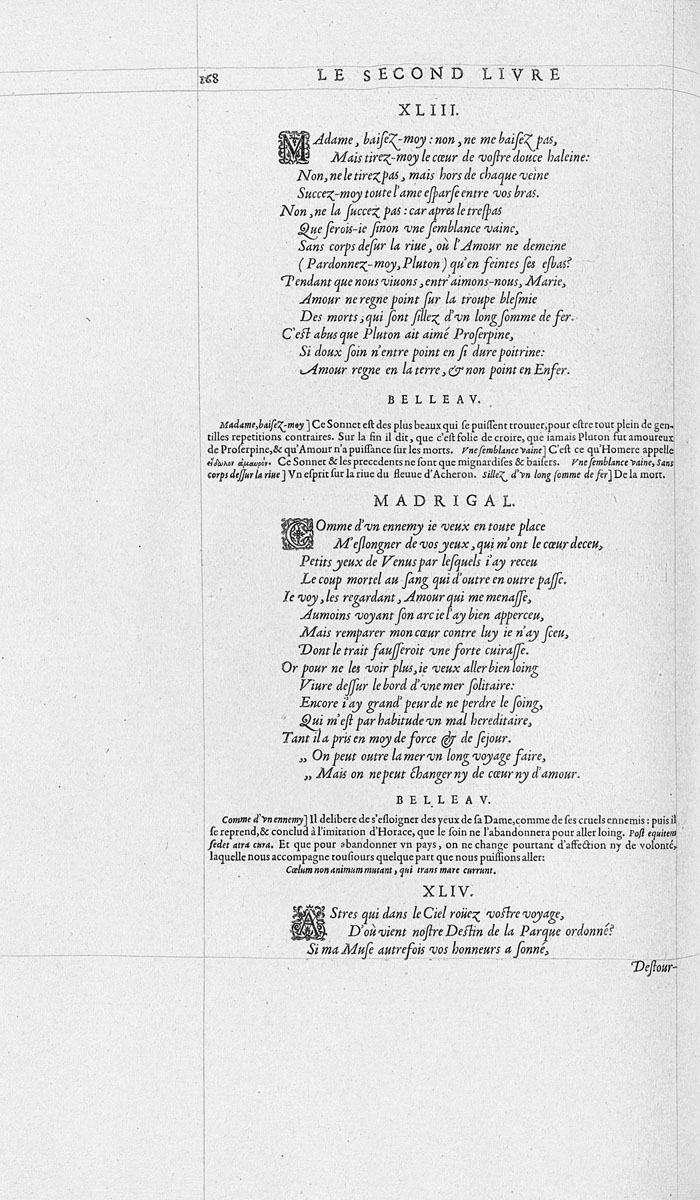 168
LE SECOND LIVRE
XLIII.
MAdame, baiſez-moy : non, ne me baiſez pas,
Mais tirez-moy le cœur de voſtre douce haleine:
Non, ne le tirez pas, mais hors de chaque veine
Succez-moy toute l'ame eſparſe entre vos bras.
Non, ne la ſuccez pas : car apres le treſpas
Que ſerois-ie ſinon vne ſemblance vaine,
Sans corps deſur la riue, où l'Amour ne demeine
(Pardonnez-moy, Pluton) qu'en feintes ſes eſbas?
Pendant que nous viuons, entr'aimons-nous, Marie,
Amour ne regne point ſur la troupe bleſmie
Des morts, qui ſont ſillez d'vn long ſomme de fer.
C'eſt abus que Pluton ait aimé Proſerpine,
Si doux ſoin n'entre point en ſi dure poitrine:
Amour regne en la terre, & non point en Enfer.
BELLEAV.
Madame, baiſez-moy] Ce Sonnet eſt des plus beaux qui ſe puiſſent trouuer, pour eſtre tout plein de gen-
tilles repetitions contraires. Sur la fin il dit, que c'eſt folie de croire, que iamais Pluton fut amoureux
de Proſerpine, & qu'Amour n'a puiſſance ſur les morts. Vne ſemblance vaine] C'eſt ce qu'Homere appelle
εἴδωλον ἀμαυρόν. Ce Sonnet & les precedents ne ſont que mignardiſes & baiſers. Vne ſemblance vaine, Sans
corps deſſur la riue] Vn eſprit ſur la riue du fleuue d'Acheron. Sillez d'vn long ſomme de fer] De la mort.
MADRIGAL.
COmme d'vn ennemy ie veux en toute place
M'eſlongner de vos yeux, qui m'ont le cœur deceu,
Petits yeux de Venus par leſquels i'ay receu
Le coup mortel au ſang qui d'outre en outre paſſe.
Ie voy, les regardant, Amour qui me menaſſe,
Aumoins voyant ſon arc ie l'ay bien apperceu,
Mais remparer mon cœur contre luy ie n'ay ſceu,
Dont le trait fauſſeroit vne forte cuiraſſe.
Or pour ne les voir plus, ie veux aller bien loing
Viure deſſur le bord d'vne mer ſolitaire:
Encore i'ay grand' peur de ne perdre le ſoing,
Qui m'eſt par habitude vn mal hereditaire,
Tant il a pris en moy de force & de ſejour.
„ On peut outre la mer vn long voyage faire,
„ Mais on ne peut changer ny de cœur ny d'amour.
BELLEAV.
Comme d'vn ennemy] Il delibere de s'eſloigner des yeux de ſa Dame, comme de ſes cruels ennemis : puis il
ſe reprend, & conclud à l'imitation d'Horace, que le ſoin ne l'abandonnera pour aller loing. Poſt equitem
ſedet atra cura. Et que pour abandonner vn pays, on ne change pourtant d'affection ny de volonté,
laquelle nous accompagne touſiours quelque part que nous puiſſions aller:
Cœlum non animum mutant, qui trans mare currunt.
XLIV.
AStres qui dans le Ciel roüez voſtre voyage,
D'où vient noſtre Deſtin de la Parque ordonné?
Si ma Muſe autrefois vos honneurs a ſonné,
Deſtour-